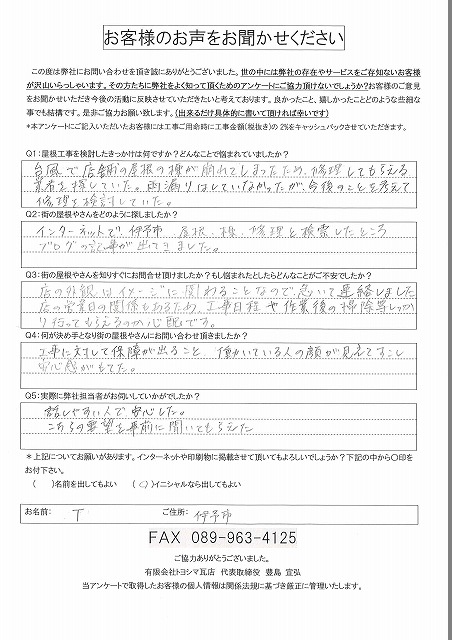 お客様のお声をお聞かせください
この度は弊社にお問い合わせを頂き誠にありがとうございました。世の中には弊社の存在やサービスをご存知ないお客様
が沢山いらっしゃいます。その方たちに弊社をよく知って頂くためのアンケートにご協力頂けないでしょうか?お客様のご意見
をお聞かせいただき今後の活動に反映させていただきたいと考えております。良かったこと、嬉しかったことどのような些細な
事でも結構です。是非ご協力お願い致します。(出来るだけ具体的に書いて頂ければ幸いです)
*本アンケートにご記入いただいたお客様には工事ご用命時に工事金額(税抜き)の 2%をキャッシュバックさせていただきます。
Q1:屋根工事を検討したきっかけは何ですか?どんなことで悩まれていましたか?
台風で店舗の屋根の棟が崩れてしまったため、修理してもらえる
業者を探していた。雨漏りはしていなかったが、今後のことを考えて
修理を検討していた。
Q2:街の屋根やさんをどのように探しましたか?
インターネットで、伊予市 屋根、棟、修理と検索したところ
ブログの記事が出てきました。
Q3:街の屋根やさんを知りすぐにお問合せ頂けましたか?もし悩まれたとしたらどんなことがご不安でしたか?
店の外観はイメージに関わることなので急いで連絡しました
店の営業日の関係もあるため、工事日程や作業後の掃除等しっか
り行ってもらえるのか心配です。
Q4:何が決め手となり街の屋根やさんにお問い合わせ頂きましたか?
工事に対して保障が出ること、働いている人の顔が見えてすこし
安心感がもてた。
Q5:実際に弊社担当者がお伺いしていかがでしたか?
話しやすい人で安心した。
こちらの要望を事前に聞いてもらえた
*上記についてお願いがあります。インターネットや印刷物に掲載させて頂いてもよろしいでしょうか?下記の中から〇印を
お付下さい。
( )名前を出してもよい (○)イニシャルなら出してもよい
お名前: T ご住所: 伊予市
FAX 089-963-4125
ご協力ありがとうございました。
有限会社トヨシマ瓦店 代表取締役 豊島 宣弘
当アンケートで取得したお客様の個人情報は関係法規に基づき厳正に管理いたします。